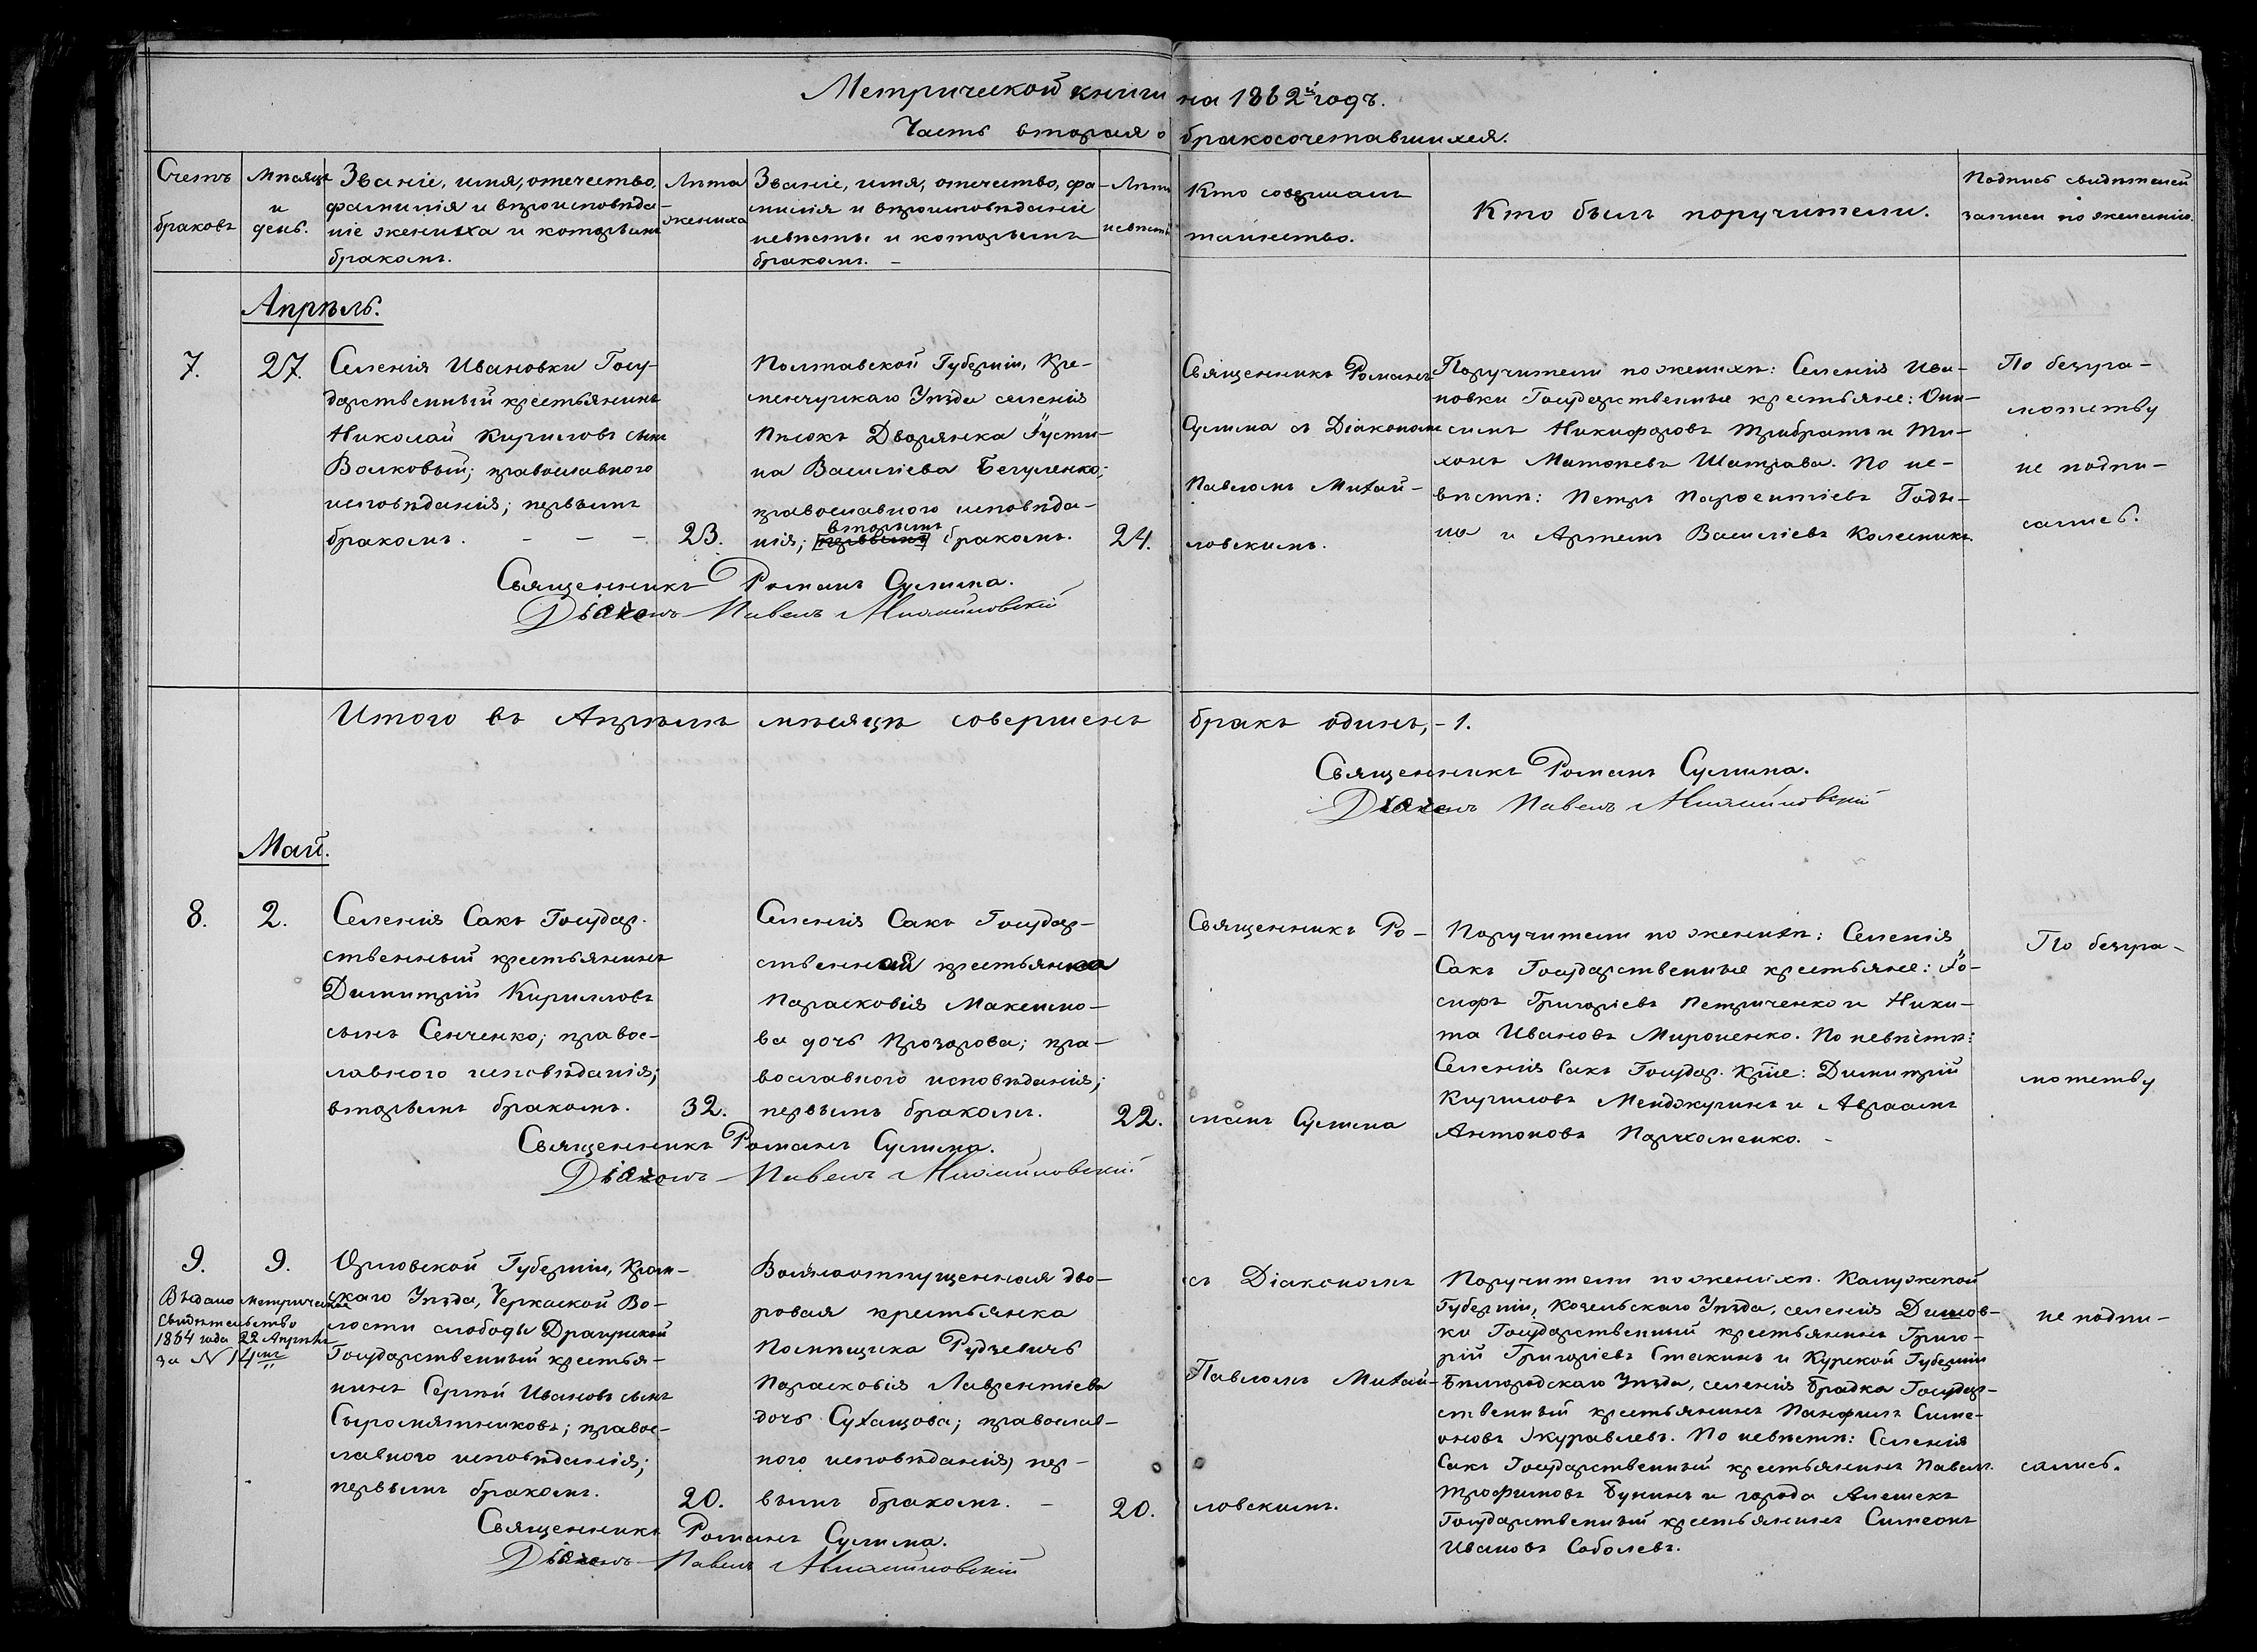 Метрической книги на 1862й годъ.
Часть вторая о бракосочетавшихся.
Счетъ браковъ
Мѣсяцъ и день.
Званіе, имя, отечество,
фамилія и вѣроисповѣда-
ніе жениха и которымъ
бракомъ.
Лѣта жениха
Званіе, имя, отечество, фа-
милія и вѣроисповѣданіе
невѣсты и которымъ
бракомъ. -
Лѣта невѣсты
Кто совершалъ
таинство.
Кто былъ поручители.
Подпись свидѣтелей
записи по желанію.
Апрѣль.
7.
27.
Селенія Ивановки Госу-
дарственный крестьянинъ
Николай Кириловъ сынъ
Волковый; православнаго
исповѣданія; первымъ
бракомъ. - - -
23.
Полтавской Губерніи, Кре-
менчугскаго Уѣзда селенія
Пѣсокъ Дворянка Іусти-
на Василіева Бегуленко;
православнаго исповѣда-
вторымъ
нія; первымъ бракомъ.
24.
Священникъ Романъ
Сулима съ Діакономъ
Павломъ Михай-
ловскимъ.
Поручители по женихѣ: Селенія Ива-
новки Государственные крестьяне: Они-
симъ Никифоровъ Трибратъ и Ти-
хонъ Матѳеевъ Шатрава. По не-
вѣстѣ: Петръ Пароентіевъ Годы-
на и Артемъ Василіевъ Колесникъ
По безгра-
мотству
не подпи-
сались.
Священникъ Романъ Сулима.
Діаконъ Павелъ Михайловскій
Итого въ Апрѣлѣ мѣсяцѣ совершенъ бракъ одинъ, - 1.
Священникъ Романъ Сулима.
Діаконъ Павелъ Михайловскій
Май.
8.
2.
Селенія Сакъ Государ-
ственный крестьянинъ
Димитрій Кирилловъ
сынъ Сенченко; правос-
лавнаго исповѣданія;
вторымъ бракомъ.
32.
Селенія Сакъ Государ-
ственная крестьянка
Парасковія Максимо-
ва дочь Прозорова; пра-
вославнаго исповѣданія;
первымъ бракомъ.
22.
Священникъ Ро-
манъ Сулима
Поручители по женихѣ: Селенія
Сакъ Государственные крестьяне: Іо-
сифъ Григоріевъ Петриченко и Ники-
та Ивановъ Мироненко. По невѣстѣ:
Селенія Сакъ Государ. Крт͠іе: Димитрій
Кириловъ Менджулинъ и Авраамъ
Антоновъ Пархоменко. -
По безгра-
мотству
Священникъ Романъ Сулима.
Діаконъ Павелъ Михайловскій
9.
9.
Выдано метрическое
свидѣтельство
1864 года 22 Апрѣля
за N 14мъ
Орловской Губерніи, Кром-
скаго Уѣзда, Черкаской Во-
лости слободы Драгунской
Государственный крестья-
нинъ Сергѣй Ивановъ сынъ
Сыромятниковъ; правос-
лавнаго исповѣданія;
первымъ бракомъ.
20.
Вольноотпущенная дво-
ровая крестьянка
Помѣщика Рудзевичъ
Парасковія Лаврентіева
дочь Суханцова; православ-
наго исповѣданія, пер-
вымъ бракомъ. -
20.
съ Діакономъ
Павломъ Михай-
ловскимъ.
Поручители по женихѣ. Калужской
Губерніи, Козельскаго Уѣзда, селенія Дишов-
ки Государственный крестьянинъ Григо-
рій Григоріевъ Стакинъ и Курской Губерніи
Бѣлгородскаго Уѣзда, селенія Бродка Государ-
ственный крестьянинъ Панфилъ Симе-
оновъ Журавлевъ. По невѣстѣ: Селенія
Сакъ Государственный крестьянинъ Павелъ
Трофимовъ Букинъ и города Алешекъ
Государственный крестьянинъ Симеонъ
Ивановъ Соболевъ.
не подпи-
сались.
Священникъ Романъ Сулима.
Діаконъ Павелъ Михайловскій